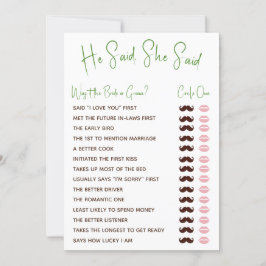 He Said, She Said
Was it the Bride or Groom? Circle One
SAID "I LOVE YOU" FIRST
MET THE FUTURE IN-LAWS FIRST
THE EARLY BIRD
THE 1ST TO MENTION MARRIAGE
A BETTER COOK
INITIATED THE FIRST KISS
TAKES UP MOST OF THE BED
USUALLY SAYS "I'M SORRY" FIRST
THE BETTER DRIVER
THE ROMANTIC ONE
LEAST LIKELY TO SPEND MONEY
THE BETTER LISTENER
TAKES THE LONGEST TO GET READY
SAYS HOW LUCKY I AM